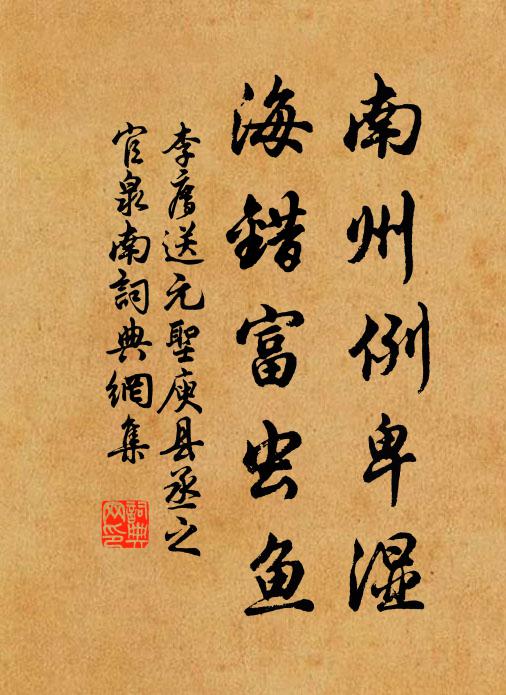 南州例卑湿
海错富虫鱼
李廌送元聖庾县丞之
官泉南詞典網集
詞典網印